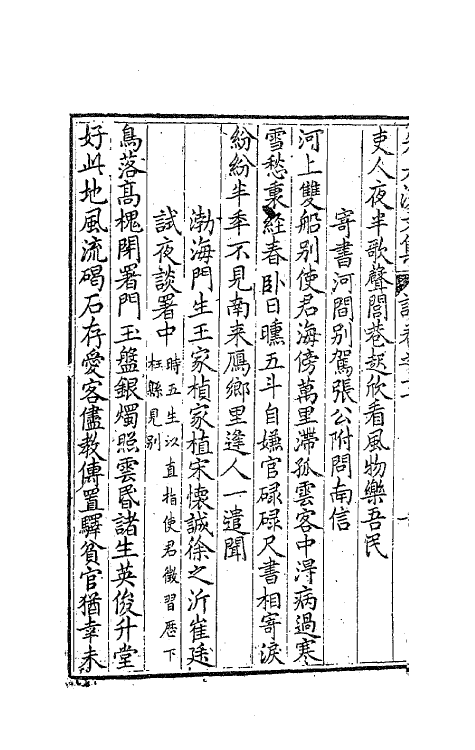 吏人夜半歌聲閭巷起欣看風物樂吾民
寄書河間別駕張公附問南信
河上雙船別使君海傍萬里滯孤雲客中淂病過寒
雪愁裏經春卧日曛五斗自嫌官碌碌尺書相寄淚
紛紛半年不見南来鴈鄉里逢人一遣聞
渤海門生王家楨家植宋懷誠徐之沂崔廷
試夜談署中時五生以直指使君徵習歷下
枉縣見別
鳥落高槐閉署門玉盤銀燭照雲昏諸生英俊升堂
好此地風流碣石存愛客儘教傳置驛貧官猶幸未